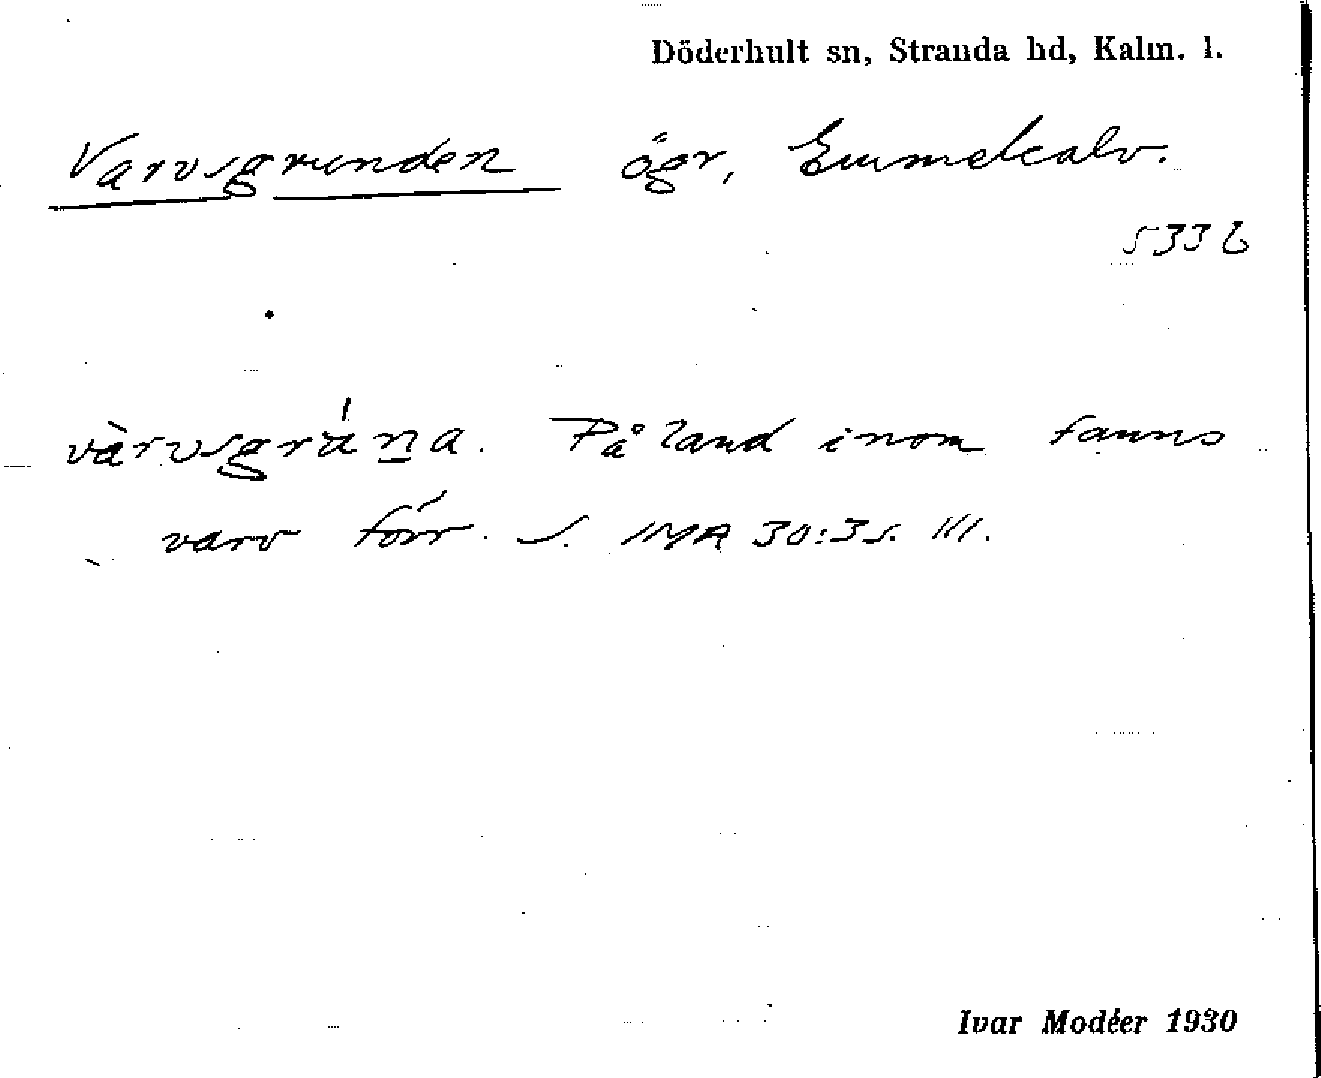 Döderhult sn, Stranda hd, Kalm. l.
Varvsgrunden ögr, Emmekalv.
5336
På land inom fanns
varv förr. S. IMA 30:35. III.
Ivar Modéer 1930